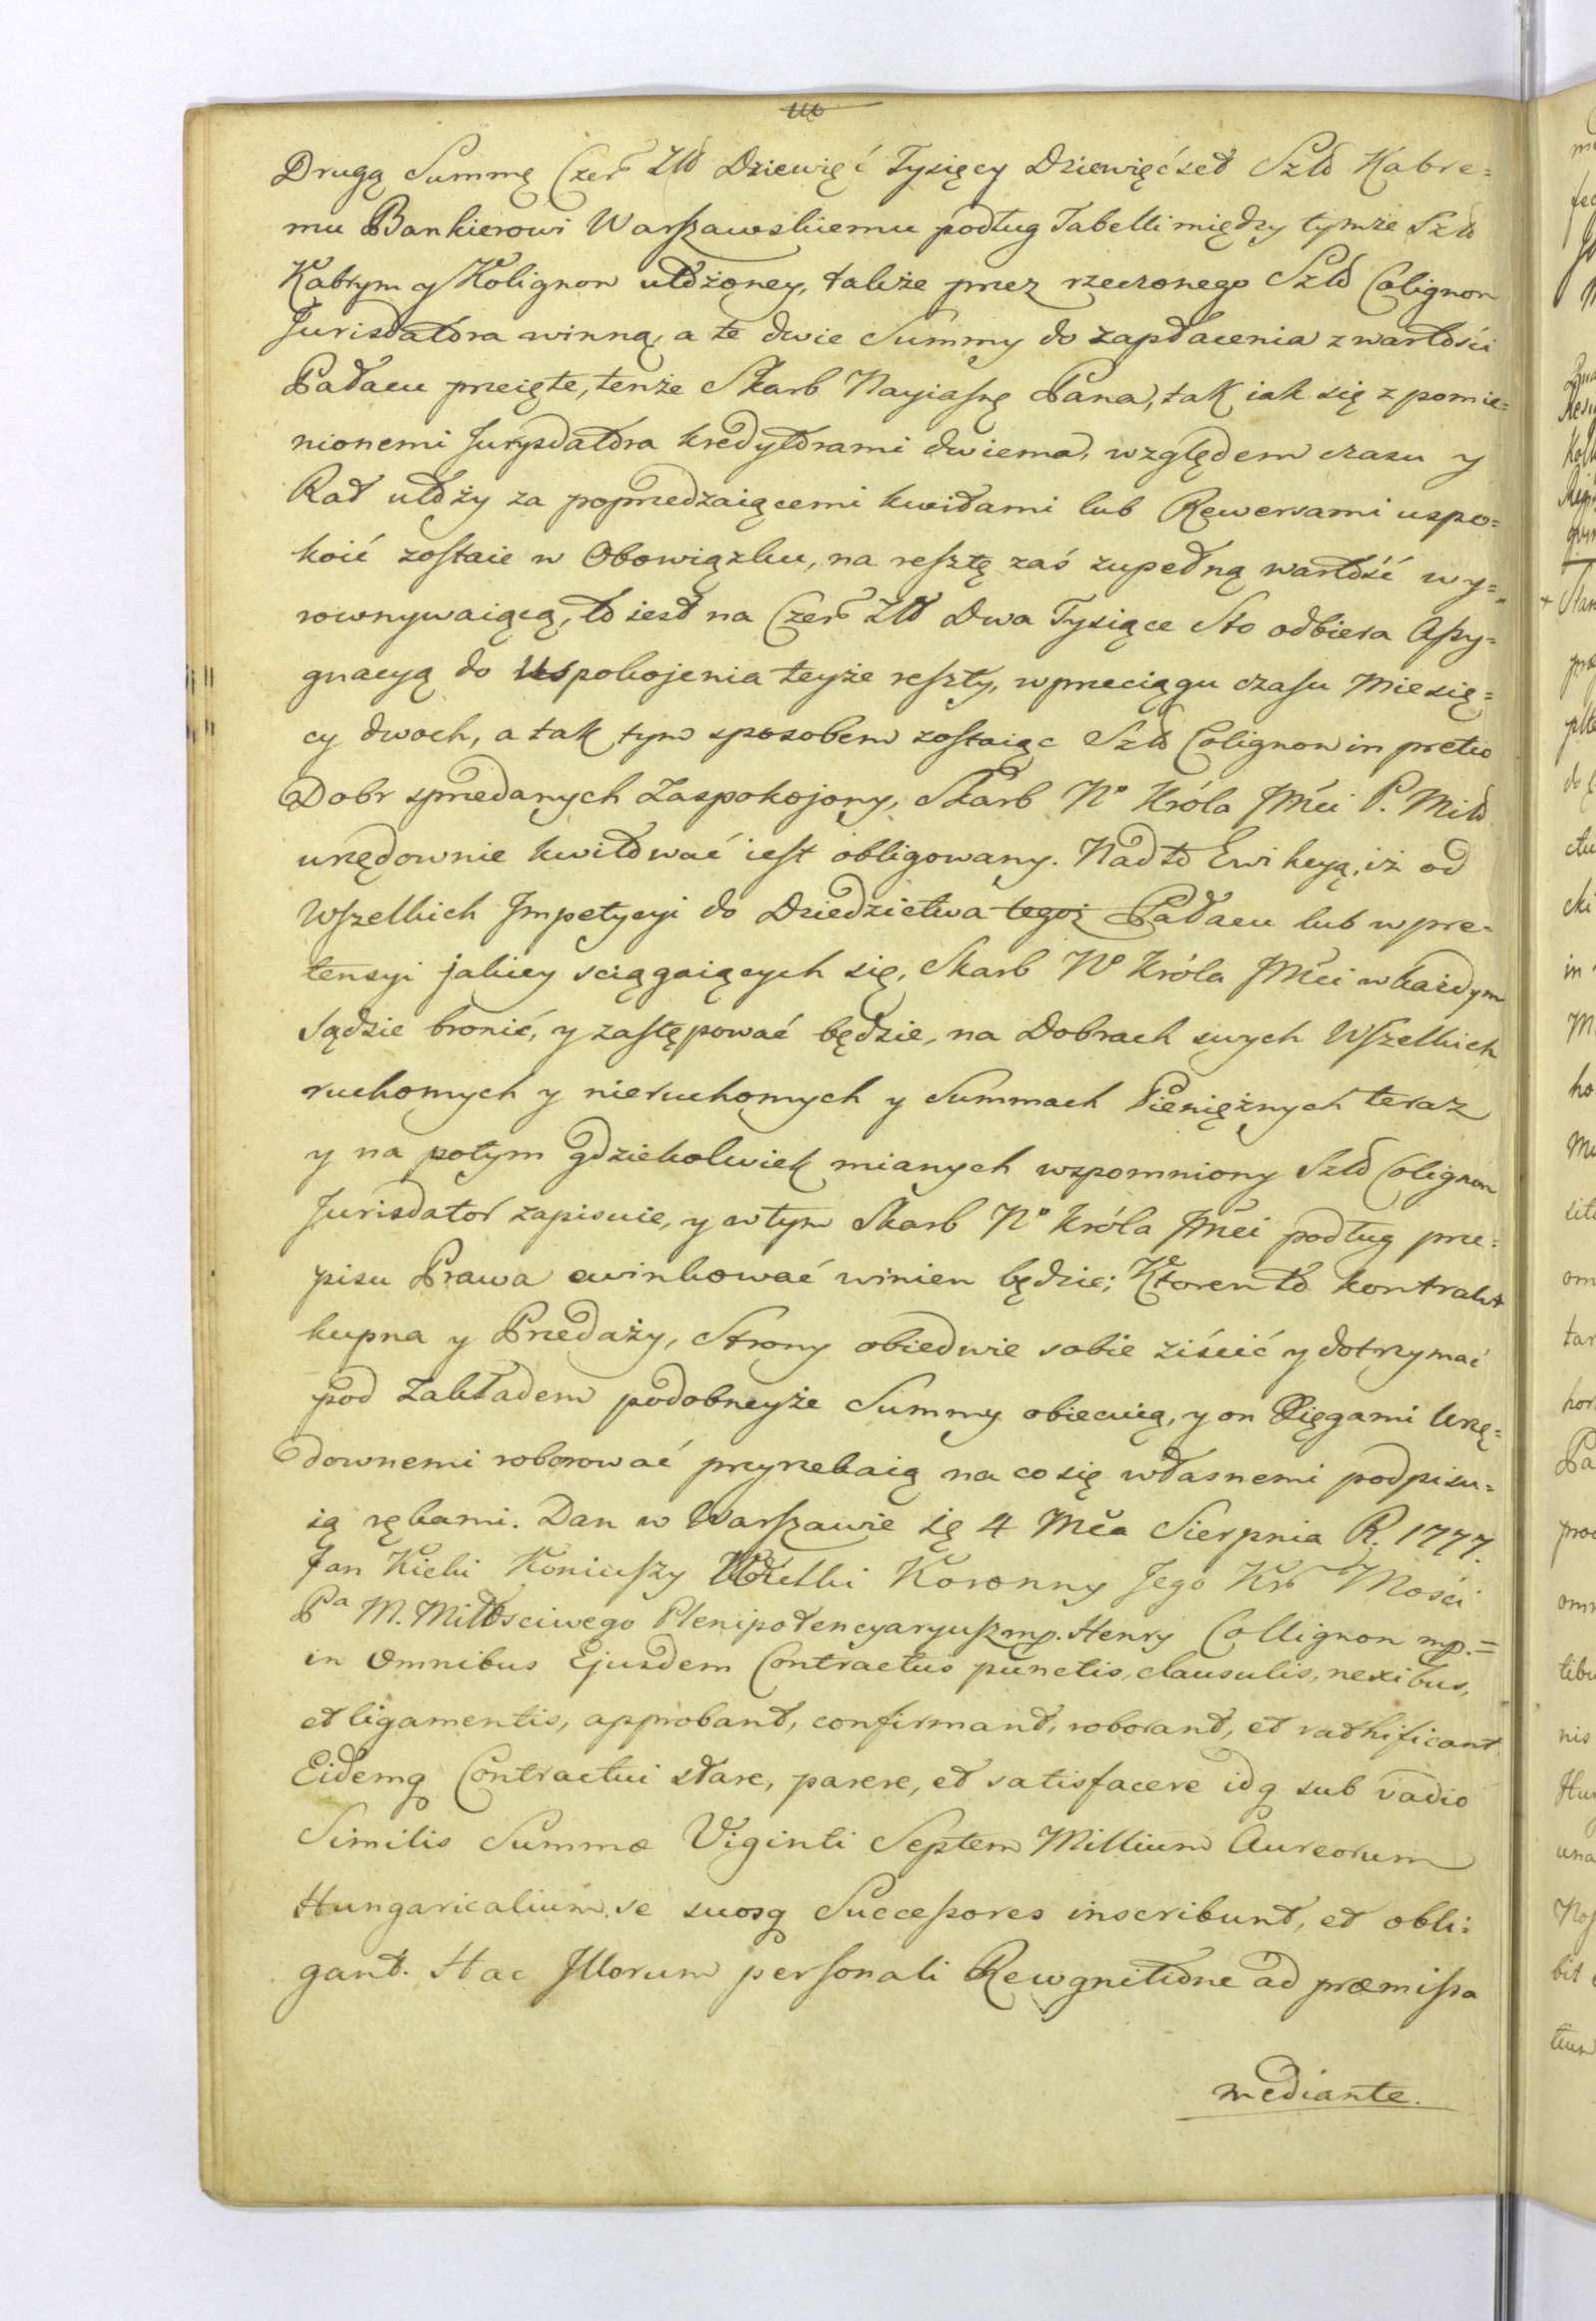 Drugą Summę Czer Zło Dziewięć Tysięcy Dziewięćset Szło Kabre=
mu Bankierowi Warszawskiemu podług Tabelli między tymże Szło
Kabrym y Kolignon ułożoney, także przez rzeczonego Szło Colignon
Jurisdatora winną, a te dwie Summy do zapłacenia z wartości
Pałacu przeięte, tenże Skarb Nayiasnę Pana, tak iak się z pomie=
nionemi Jurysdatora kredytorami dwiema, względem czasu y
Rat ułoży za poprzedzaiącemi kwitami lub Rewersami uspo=
koić zostaie w Obowiązku, na resztę zaś zupełną wartość wy=
rownywaiącą, to iest na Czer Zło Dwa Tysiące Sto odbiera Assy=
gnacyą do Uspokojenia teyże reszty, w przeciągu czasu Miesię=
cy dwoch, a tak tym sposobem zostaiąc Szło Colignon in pretio
Dobr sprzedanych Zaspokojony, Skarb No Króla JMci P. Miło
urzędownie kwitować iest obligowany. Nadto Ewikcyą, iż od
Wszelkich Impetycyi do Dziedzictwa tegoż Pałacu lub w pre=
tensyi jakiey sciągaiących się, Skarb No Króla JMci w każdym
sądzie bronić, y zastępować będzie, na Dobrach swych Wszelkich
ruchomych y nieruchomych y Summach Pieniężnych teraz
y na potym gdziekolwiek mianych wspomniony Szło Colignon
Jurisdator zapisuie, y w tym Skarb No Króla JMci podług prze=
pisu Prawa ewinkować winien będzie; Ktoren to kontrakt
kupna y Przedaży, Strony obiedwie sobie ziścić y dotrzymać
pod Zakładem podobneyże Summy obiecuią, y on Xięgami Urzę=
downemi roborować przyrzekaią na co się własnemi podpisu=
ią rękami. Dan w Warszawie ię 4 Mca Sierpnia R. 1777.
Jan Kicki Koniuszy Wielki Koronny Jego Kró Mości
Pa M. Miłosciwego Plenipotencyaryusz mp. Henry Collignon mp. =
in omnibus Ejusdem Contractus punctis, clausulis, nexibus,
et ligamentis, approbant, confirmant, roborant, et rathificant
Eidemq Contractui stare, parere, et satisfacere idq sub vadio
Similis Summæ Viginti Septem Millium Aureorum
Hungaricalium, se suosq Successores inscribunt, et obli=
gant. Hac Illorum personali Recognitione ad præmissa
mediante.